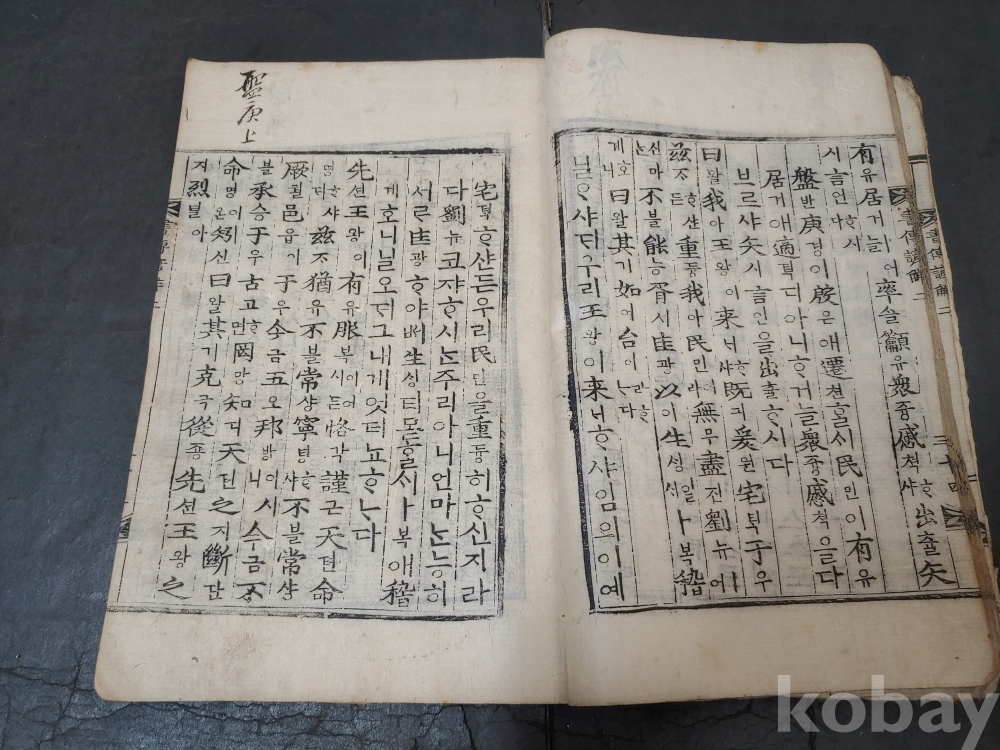 有유居거ᄒᆞ늘어率솔籲유衆즁慼쳑ᄒᆞ샤出츌矢
시言언ᄒᆞ시다
盤반庚경이殷은애遷쳔ᄒᆞᆯᄉᆡ民민이有유
居거애適뎍디아니ᄒᆞ거늘衆즁慼쳑을다
브르샤矢시言언을出츌ᄒᆞ시다
曰왈我아王왕이来ᄅᆡᄒᆞ샤旣긔爰원宅ᄐᆡᆨ于우
兹ᄌᆞᄒᆞ산든重듕我아民민이라無무盡진劉뉴ㅣ어
신마ᄂᆞᆫ不블能능胥셔匡광以이生ᄉᆡᆼ일ᄉᆡ卜복稽
계호니曰왈其기如여台이라ᄒᆞᄂᆞ다
닐ᄋᆞ샤ᄃᆡ우리王왕이来ᄅᆡᄒᆞ샤임의이예
書傳諺解二
盤庚上
宅ᄐᆡᆨᄒᆞ샨든우리民민을重듕히ᄒᆞ신지라
다劉뉴코쟈ᄒᆞ시ᄂᆞᆫ주리아니언마ᄂᆞᆫ능히
서르匡광ᄒᆞ야ᄡᅥ生ᄉᆡᆼ티몯ᄒᆞᆯᄉᆡ卜복애稽
계호니닐오ᄃᆡ그내게엇뎨료ᄒᆞᄂᆞ다
先션王왕이有유服복이어시든恪각謹근天텬命
명ᄒᆞ샤ᄃᆡ兹ᄌᆞ猶유不블常샹寧녕ᄒᆞ샤不블常샹
厥궐邑읍이于우今금五오邦방이시니今금不
블承승于우古고ᄒᆞ면罔망知디天텬之지斷단
命명이온矧신曰왈其기克극從죵先션王왕之
지烈렬아
kobay